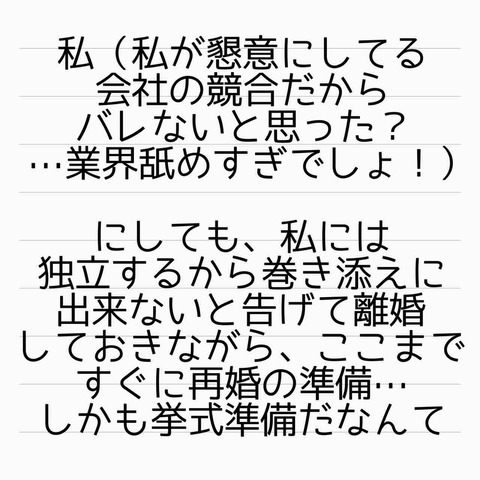 私（私が懇意にしてる
会社の競合だから
バレないと思った？
…業界舐めすぎでしょ！）
にしても、私には
独立するから巻き添えに
出来ないと告げて離婚
しておきながら、ここまで
すぐに再婚の準備…
しかも挙式準備だなんて